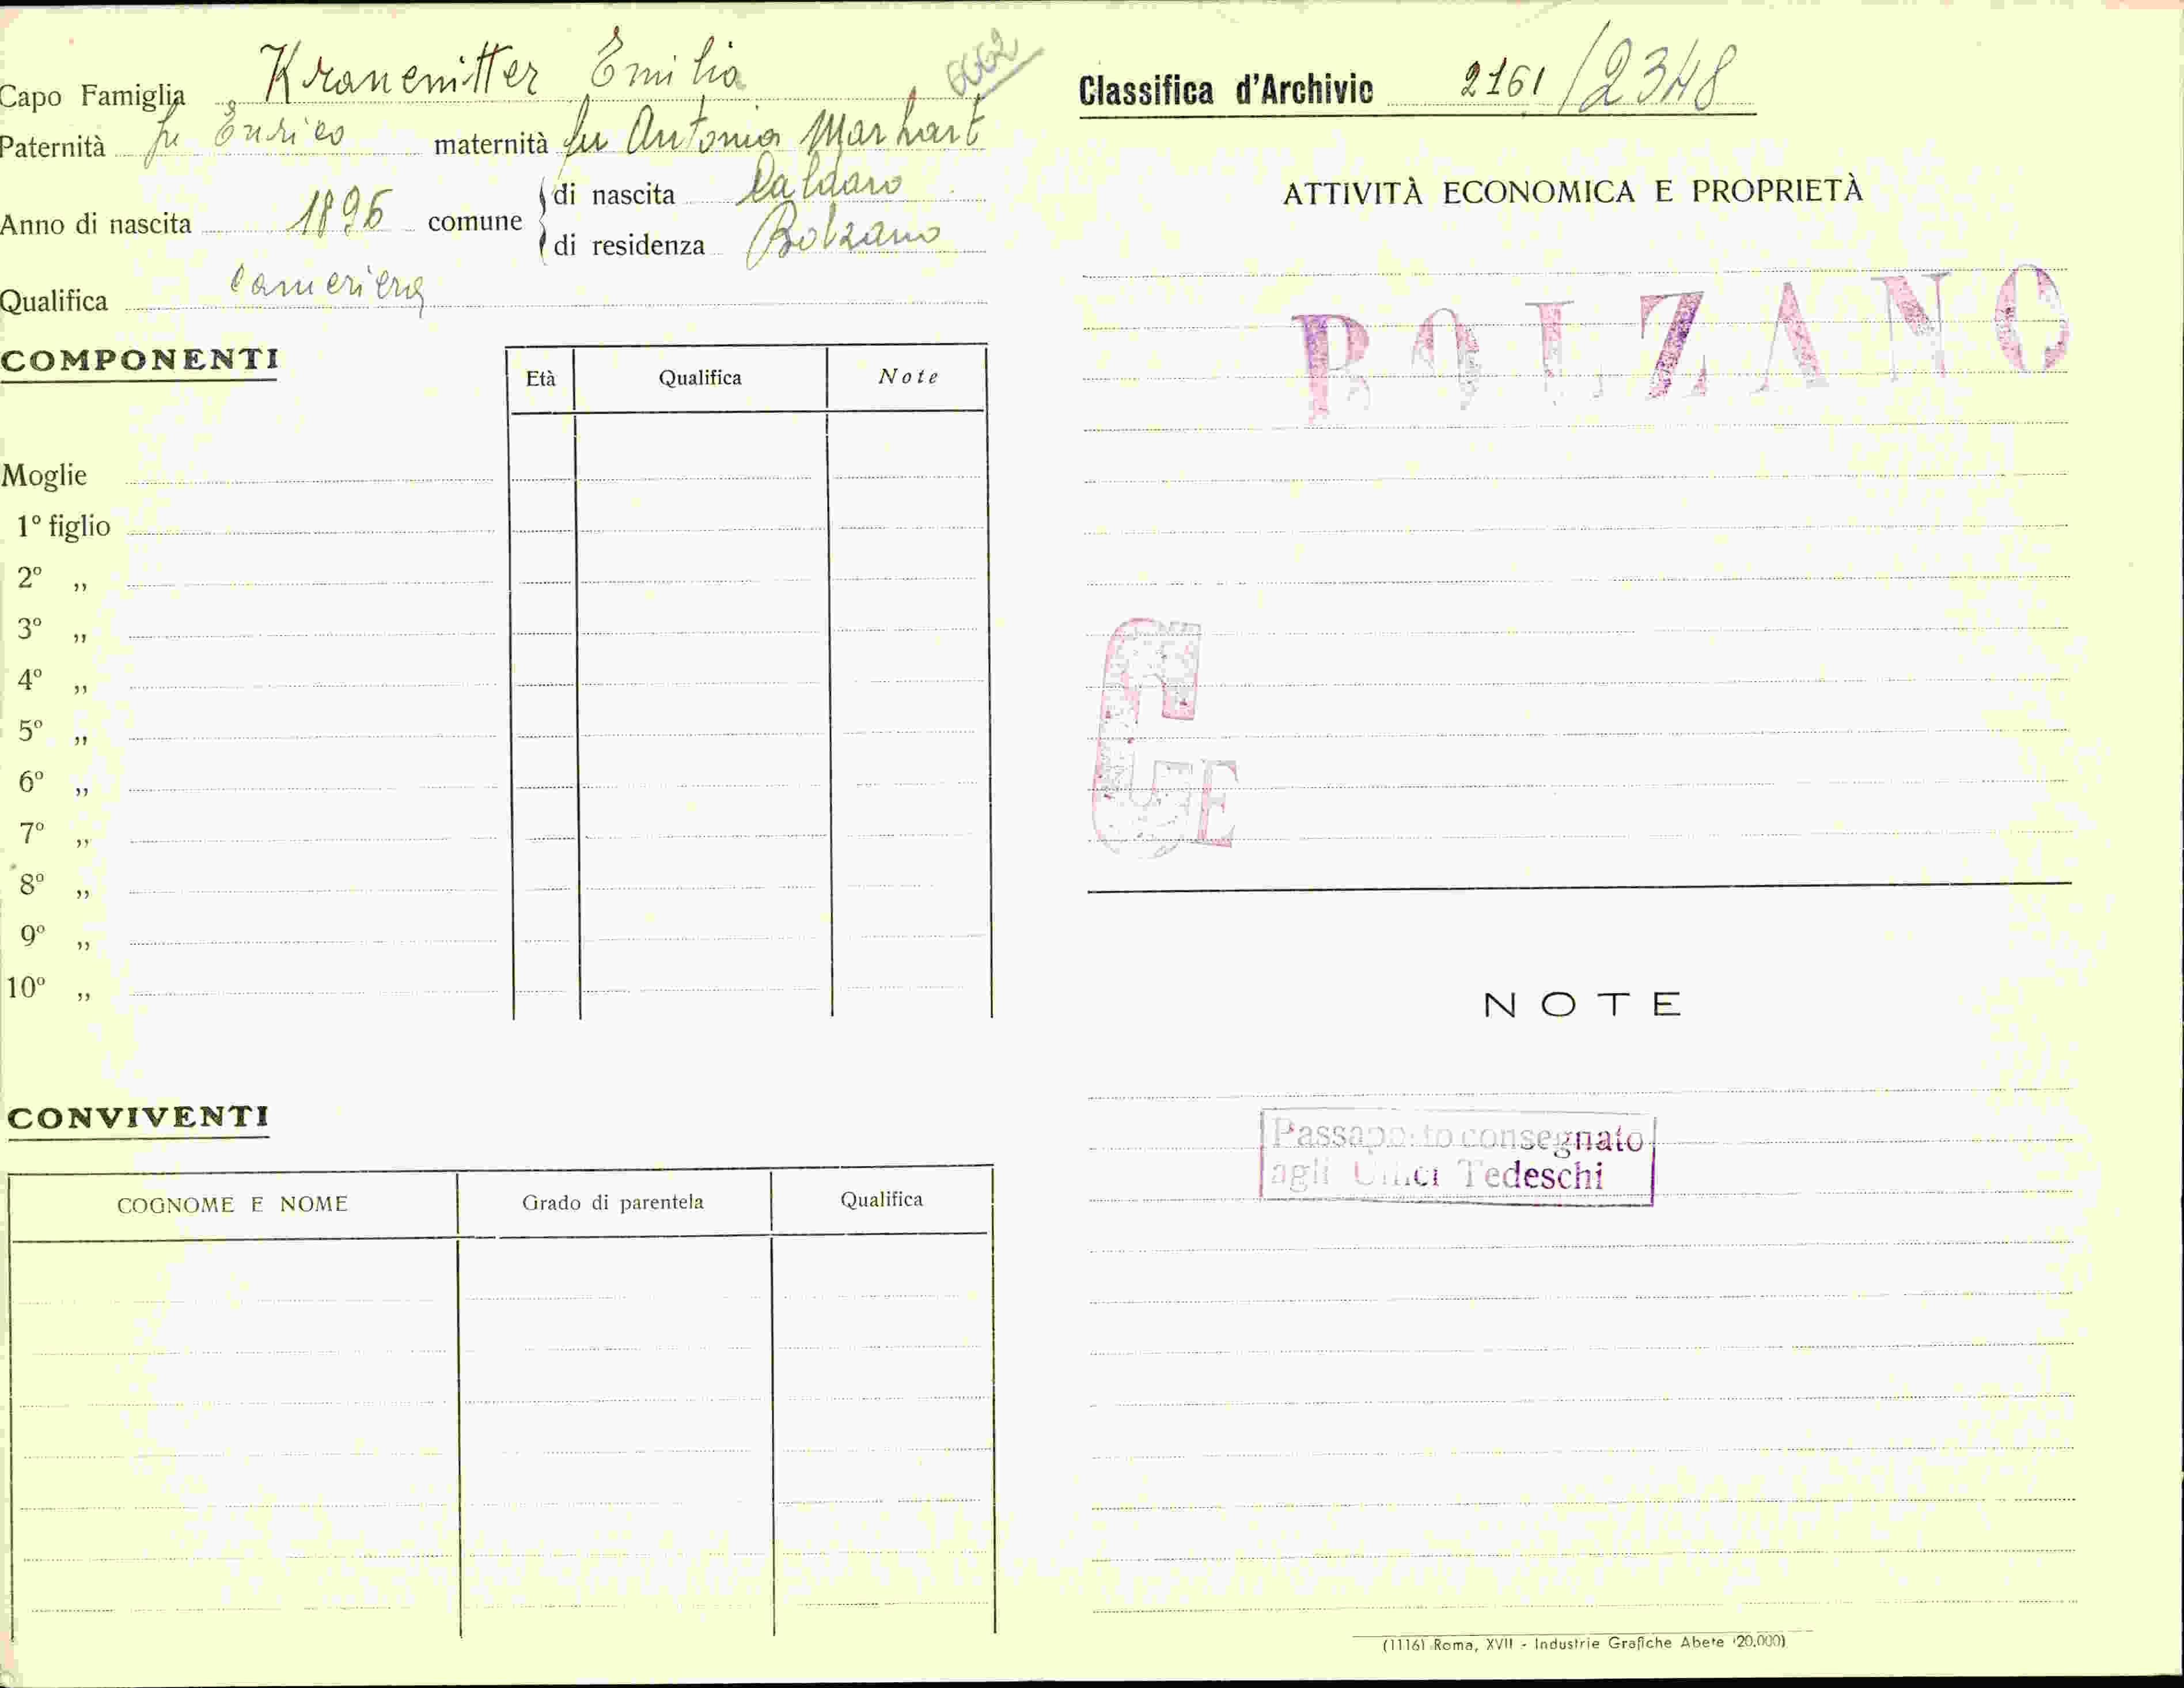 Capo Famiglia Kranenitter Emilia 6662
Paternità fu Enrico maternità fu Antonia Marhart
Anno di nascita 1896 comune di nascita Caldaro
di residenza Bolzano
Qualifica cameriera
COMPONENTI
Età Qualifica Note
Moglie
1º figlio
2º „
3º „
4º „
5º „
6º „
7º „
8º „
9º „
10º „
CONVIVENTI
COGNOME E NOME Grado di parentela Qualifica
Classifica d'Archivio 2161/2348
ATTIVITÀ ECONOMICA E PROPRIETÀ
BOLZANO
NOTE
Passaporto consegnato
agli Uffici Tedeschi
(1116) Roma, XVII - Industrie Grafiche Abete (20.000)